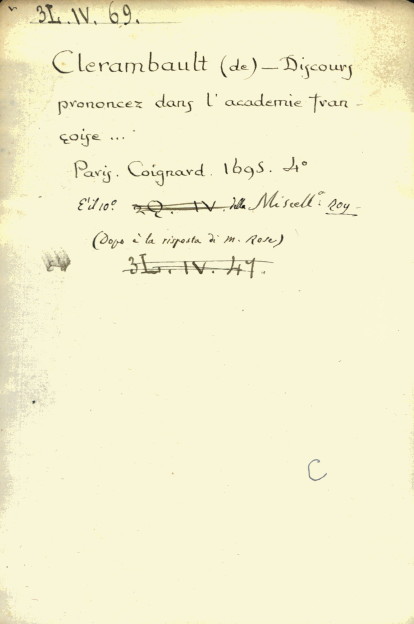 3L. IV. 69.
Clerambault (de) — Discours
prononcez dans l' academie fran-
çoise ...
Paris. Coignard. 1695. 4°
E' il 10° 2Q. IV della Miscell.ª Roy-
(Dopo è la risposta di m. Rose)
3L. IV. 47.
C